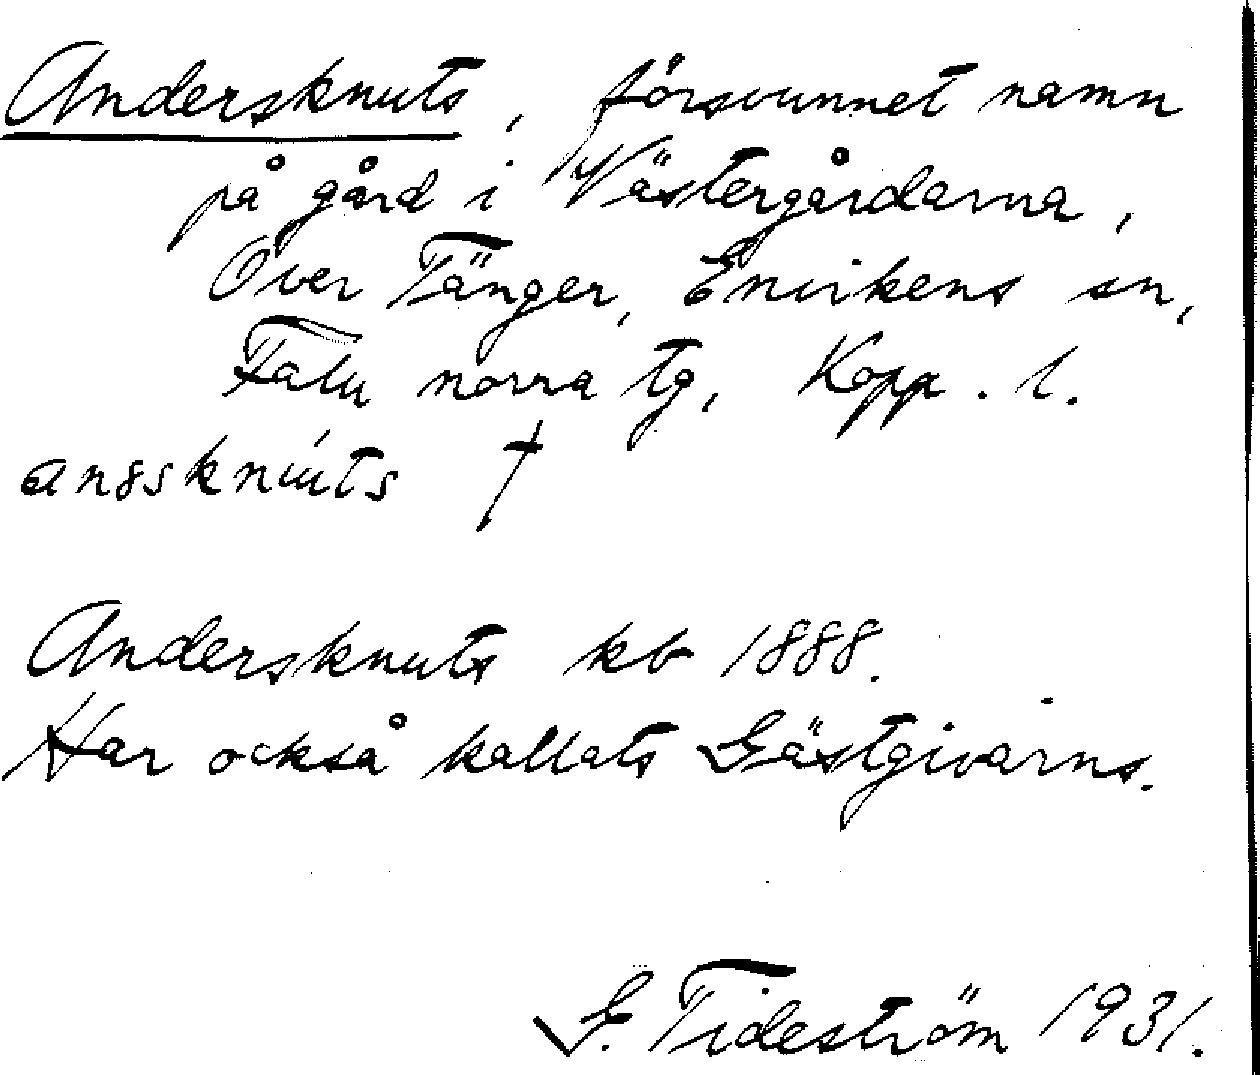 Andersknuts, försvunnet namn
på gård i Västergårdarna,
Över Tänger, Envikens sn,
Falu norra tg, Kopp. l.
anssknúts †
Andersknuts kb 1888.
Har också kallats Gästgivarns.
G. Tideström 1931.